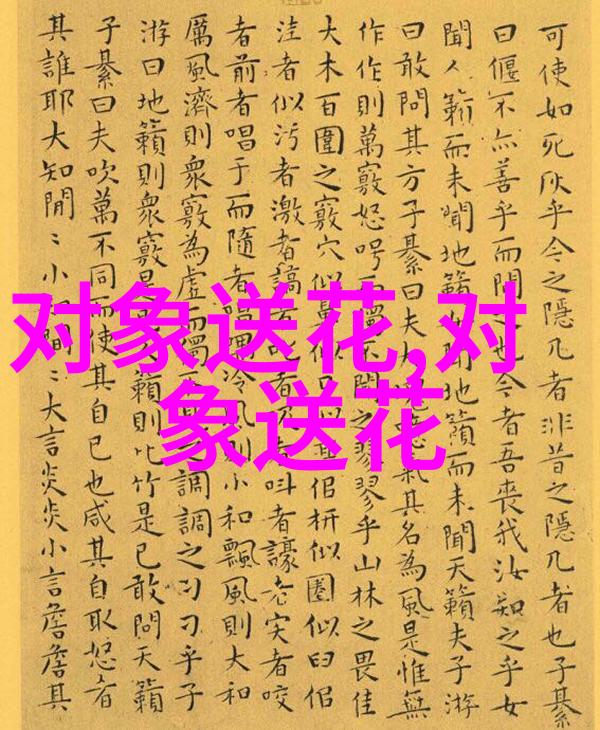 可使如死灰乎今之隱几者非昔之隱几者也子綦
曰偃不亦善乎而問之也今者吾喪我汝知之乎女
聞人籟而未聞地籟聞地籟而未聞天籟夫子游
曰敢問其方子綦曰夫大噫氣其名為風是惟無
作作則萬竅怒呺而聞之翏翏乎山林之畏佳
大木百圍之竅穴似鼻似佀枅似圈似臼佀
洼者似污者激者謞者者者叫者譹者宎者咬
者前者唱于而隨者唱泠風則小和飄風則大和
厲風濟則衆竅為虛而獨調調之刁刁乎子
游曰地籟則衆竅是籟則比竹是已敢問天籟
子綦曰夫吹萬不同而使其自已也咸其自取怒者
其誰耶大知閒〻小閒〻大言炎炎小言詹詹其
对象送花,对
象送花